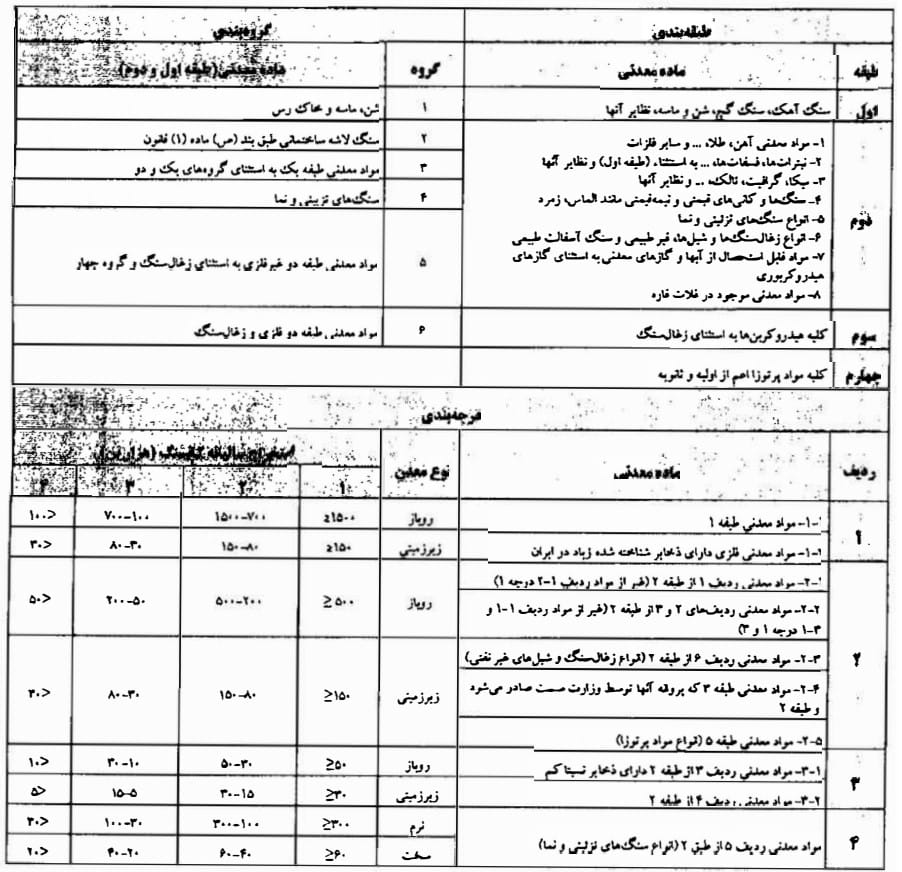 طبقه‌بندی
گروه‌بندی
طبقه
ماده معدنی
گروه
ماده معدنی (طبقه اول و دوم)
اول
سنگ آهک، سنگ گچ، شن و ماسه، نظایر آنها
۱
شن، ماسه و خاک رس
دوم
۱- مواد معدنی آهن، طلا، ... و سایر فلزات
۲- نیترات‌ها، فسفات‌ها، ... به استثناء (طبقه اول) و نظایر آنها
۳- میکا، گرافیت، تالک، ... و نظایر آنها
۴- سنگ‌ها و کانی‌های قیمتی و نیمه‌قیمتی مانند الماس، زمرد
۵- انواع سنگ‌های تزئینی و نما
۶- انواع زغال‌سنگ‌ها و شیل‌ها، قیر طبیعی و سنگ آسفالت طبیعی
۷- مواد قابل استحصال از آبها و گازهای معدنی به استثنای گازهای
هیدروکربوری
۸- مواد معدنی موجود در فلات قاره
۲
سنگ لاشه ساختمانی طبق بند (ص) ماده (۱) قانون
۳
مواد معدنی طبقه یک به استثنای گروه‌های یک و دو
۴
سنگ‌های تزیینی و نما
۵
مواد معدنی طبقه دو غیرفلزی به استثنای زغال‌سنگ و گروه چهار
سوم
کلیه هیدروکربن‌ها به استثنای زغال‌سنگ
۶
مواد معدنی طبقه دو فلزی و زغال‌سنگ
چهارم
کلیه مواد پرتوزا اعم از اولیه و ثانویه
درجه‌بندی
ردیف
ماده معدنی
نوع معدن
استخراج سالیانه کانسنگ (هزار تن)
۱
۲
۳
۴
۱
۱-۱- مواد معدنی طبقه ۱
۱-۱- مواد معدنی فلزی دارای ذخایر شناخته شده زیاد در ایران
روباز
≥۱۵۰۰
۱۵۰۰-۷۰۰
۷۰۰-۱۰۰
۱۰۰>
زیرزمینی
≥۱۵۰
۱۵۰-۸۰
۸۰-۳۰
۳۰>
۲
۱-۲- مواد معدنی ردیف ۱ از طبقه ۲ (غیر از مواد ردیف ۱-۲ درجه ۱)
۲-۲- مواد معدنی ردیف‌های ۲ و ۳ از طبقه ۲ (غیر از مواد ردیف ۱-۱ و
۳-۱ درجه ۱ و ۳)
۲-۳- مواد معدنی ردیف ۶ از طبقه ۲ (انواع زغال‌سنگ و شیل‌های غیر نفتی)
۲-۴- مواد معدنی طبقه ۳ که پروانه آنها توسط وزارت صمت صادر می‌شود
و طبقه ۲
۲-۵- مواد معدنی طبقه ۵ (انواع مواد پرتوزا)
روباز
≥۵۰۰
۵۰۰-۲۰۰
۲۰۰-۵۰
۵۰>
زیرزمینی
≥۱۵۰
۱۵۰-۸۰
۸۰-۳۰
۳۰>
۳
۳-۱- مواد معدنی ردیف ۳ از طبقه ۲ دارای ذخایر نسبتا کم
۳-۲- مواد معدنی ردیف ۴ از طبقه ۲
روباز
≥۵۰
۵۰-۳۰
۳۰-۱۰
۱۰>
زیرزمینی
≥۳۰
۳۰-۱۵
۱۵-۵
۵>
۴
مواد معدنی ردیف ۵ از طبق ۲ (انواع سنگ‌های تزئینی و نما)
نرم
≥۳۰۰
۳۰۰-۱۰۰
۱۰۰-۳۰
۳۰>
سخت
≥۶۰
۶۰-۴۰
۴۰-۲۰
۲۰>